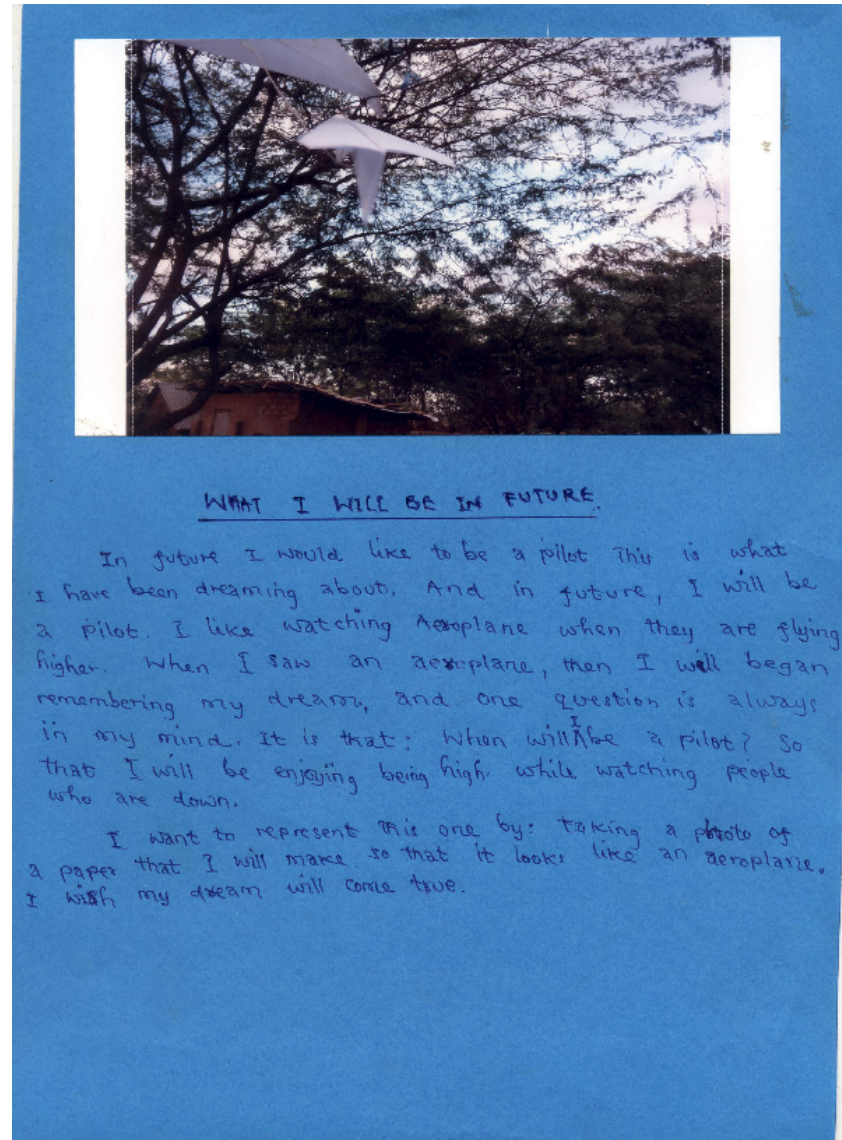 WHAT I WILL BE IN FUTURE.
In future I would like to be a pilot This is what
I have been dreaming about. And in future, I will be
a pilot. I like watching Aeroplane when they are flying
higher. When I saw an aeroplane, then I will began
remembering my dream, and one question is always
in my mind. It is that: When will I be a pilot? So
that I will be enjoying being high while watching people
who are down.
I want to represent this one by: taking a photo of
a paper that I will make so that it looks like an aeroplane.
I wish my dream will come true.